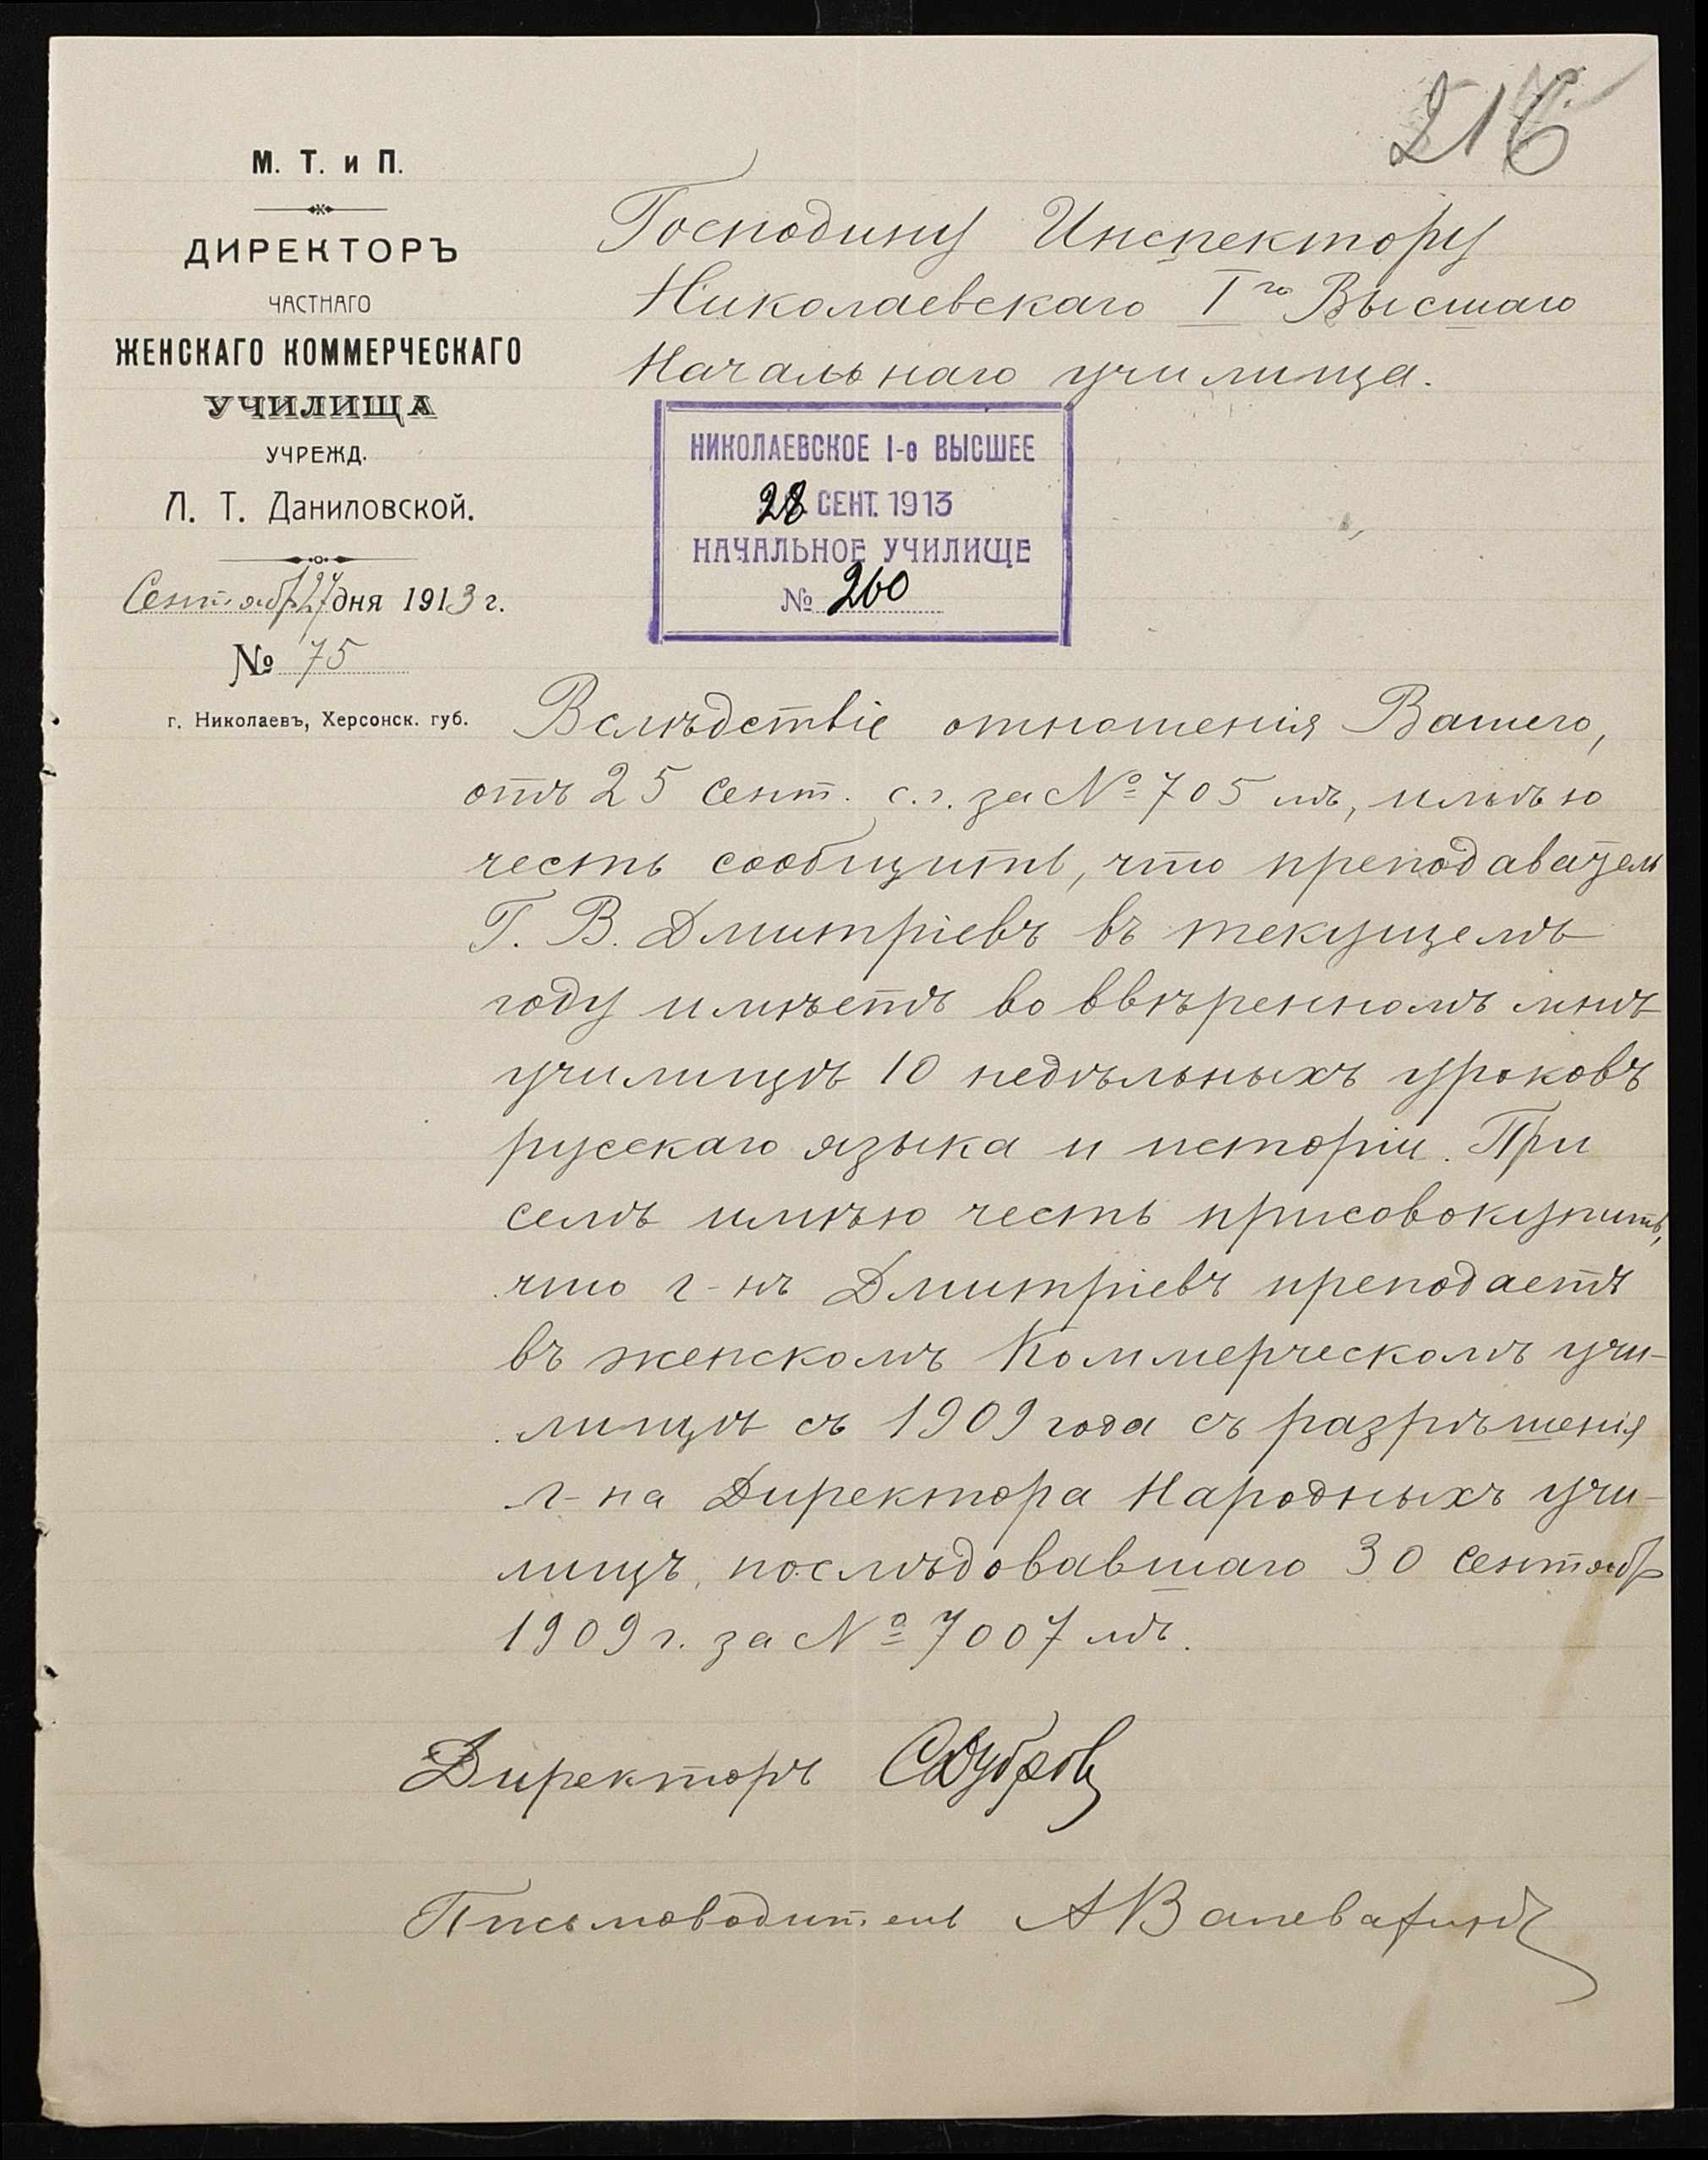 216
М. Т. и П.
ДИРЕКТОРЪ
ЧАСТНАГО
ЖЕНСКАГО КОММЕРЧЕСКАГО
УЧИЛИЩА
УЧРЕЖД.
Л. Т. Даниловской.
Сентябр 27 дня 1913 г.
№ 75
г. Николаевъ, Херсонск. губ.
Господину Инспектору
Николаевскаго Iго Высшаго
Начальнаго училища.
НИКОЛАЕВСКОЕ I-е ВЫСШЕЕ
28 СЕНТ. 1913
НАЧАЛЬНОЕ УЧИЛИЩЕ
№ 260
Вслѣдствіе отношенія Вашего,
отъ 25 сент. с.г. за № 705 мъ, имѣю
честь сообщить, что преподаватель
Г. В. Дмитріевъ въ текущемъ
году имѣетъ во ввѣренномъ мнѣ
училищѣ 10 недѣльныхъ уроковъ
русскаго языка и исторіи. При
семъ имѣю честь присовокупить,
что г-нъ Дмитріевъ преподаетъ
въ женскомъ Коммерческомъ учи-
лищѣ съ 1909 года съ разрѣшенія
г-на Директора Народныхъ учи-
лищъ, послѣдовавшаго 30 сентябр
1909 г. за № 7007 мъ.
Директоръ
Письмоводитель